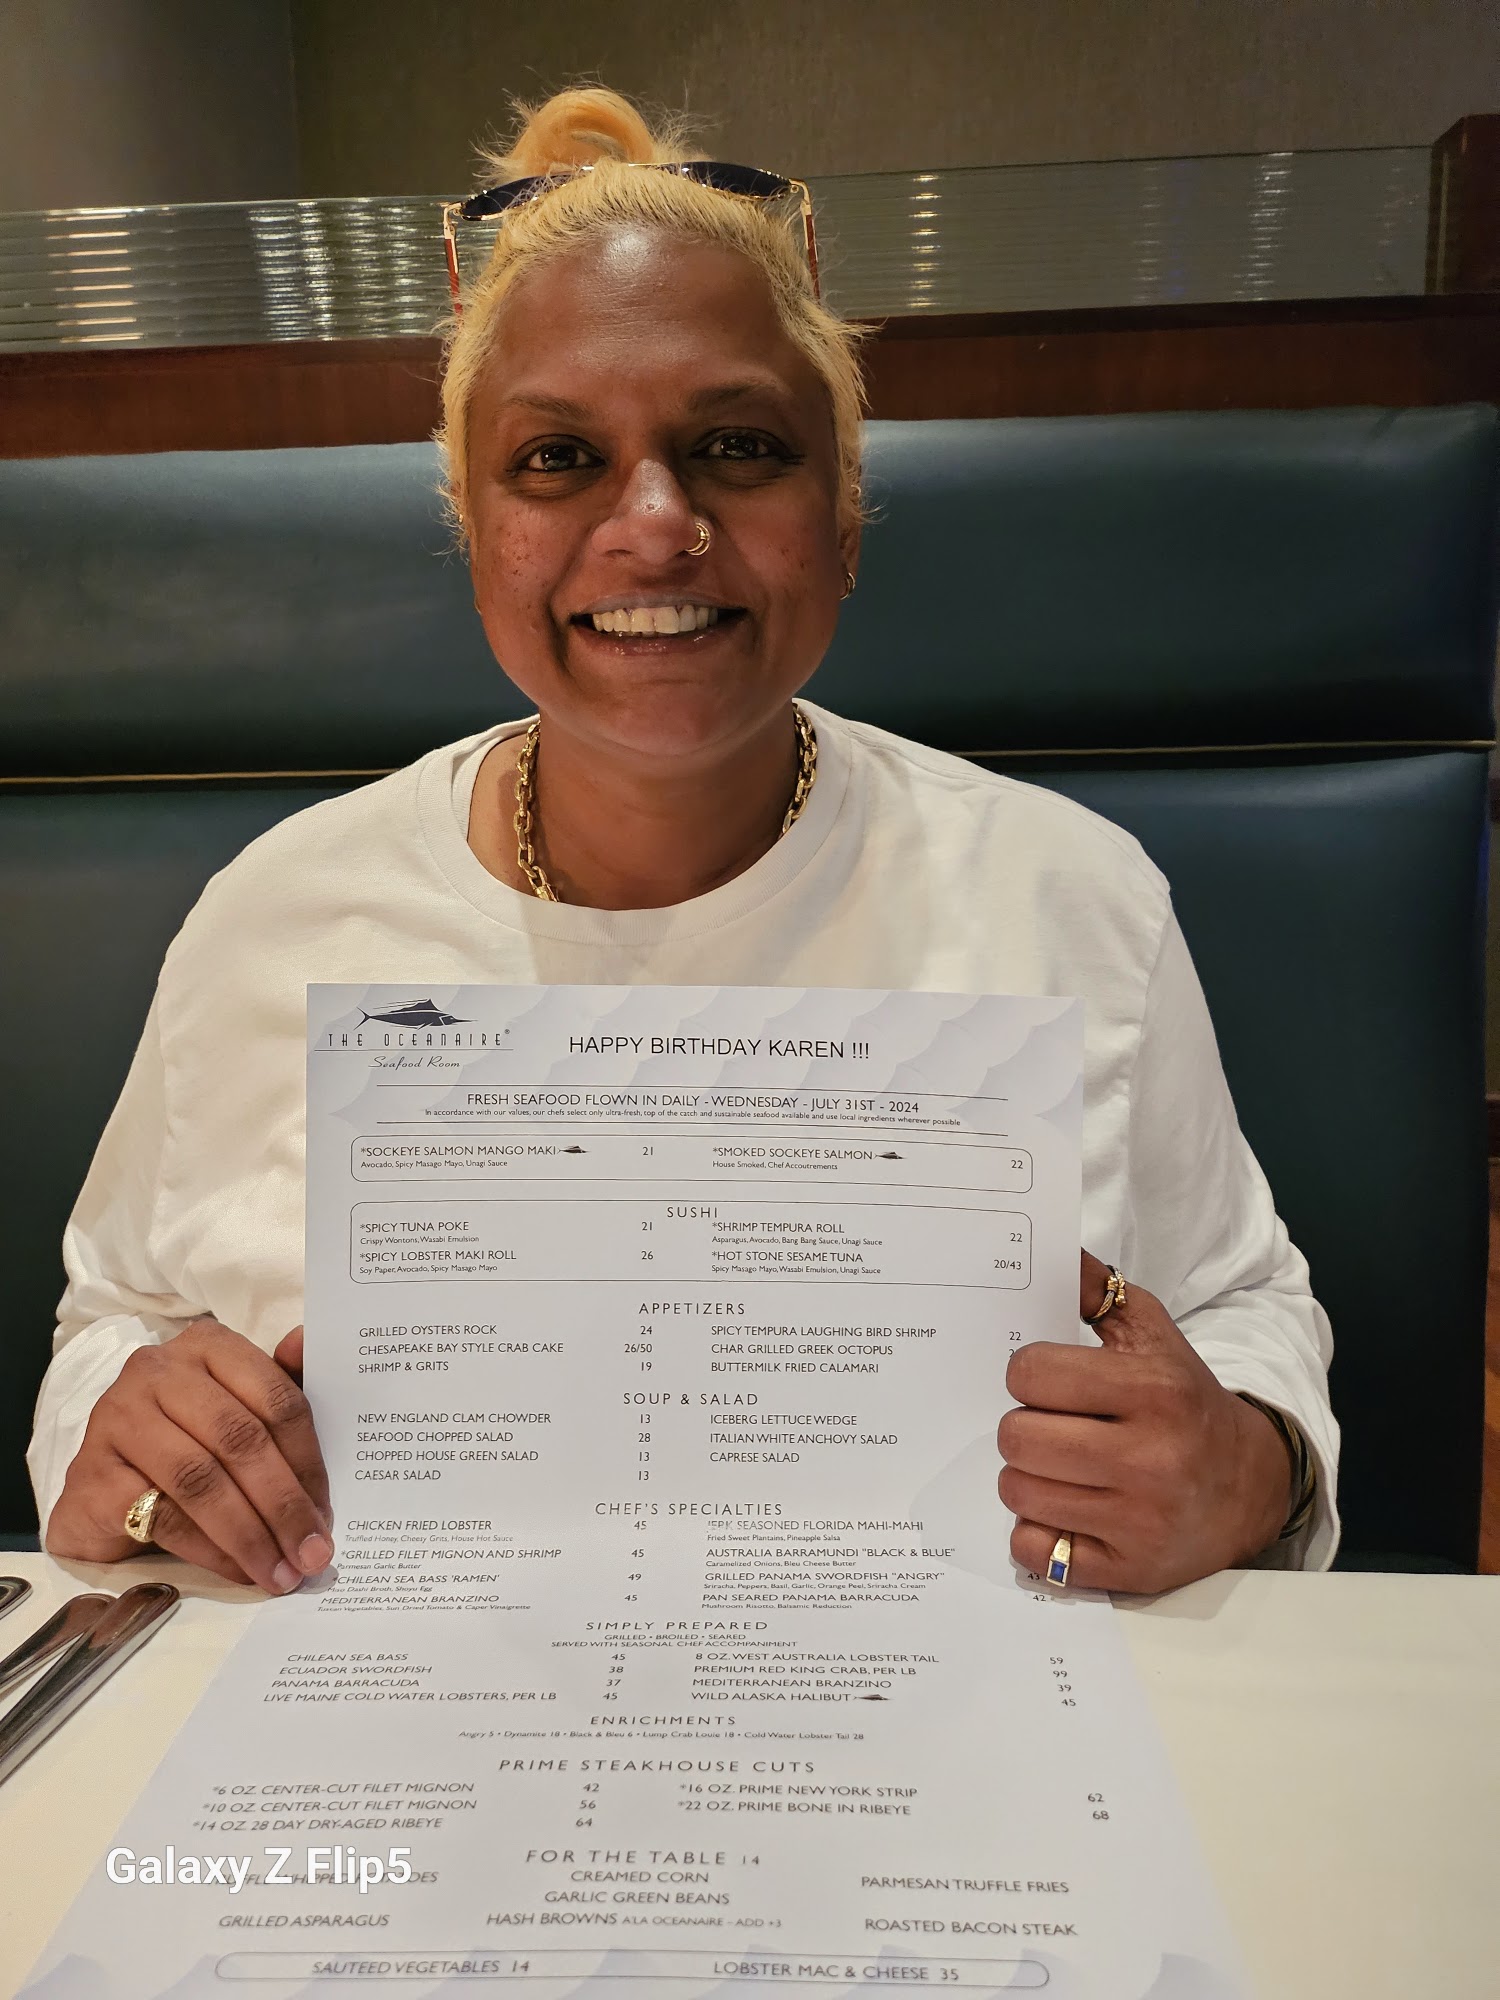 THE OCEANAIRE®
Seafood Room
HAPPY BIRTHDAY KAREN !!!
FRESH SEAFOOD FLOWN IN DAILY - WEDNESDAY - JULY 31ST - 2024
In accordance with our values, our chefs select only ultra-fresh, top of the catch and sustainable seafood available and use local ingredients wherever possible
*SOCKEYE SALMON MANGO MAKI 21 *SMOKED SOCKEYE SALMON 22
Avocado, Spicy Masago Mayo, Unagi Sauce House Smoked, Chef Accoutrements
SUSHI
*SPICY TUNA POKE 21 *SHRIMP TEMPURA ROLL 22
Crispy Wontons, Wasabi Emulsion Asparagus, Avocado, Bang Bang Sauce, Unagi Sauce
*SPICY LOBSTER MAKI ROLL 26 *HOT STONE SESAME TUNA 20/43
Soy Paper, Avocado, Spicy Masago Mayo Spicy Masago Mayo, Wasabi Emulsion, Unagi Sauce
APPETIZERS
GRILLED OYSTERS ROCK 24 SPICY TEMPURA LAUGHING BIRD SHRIMP 22
CHESAPEAKE BAY STYLE CRAB CAKE 26/50 CHAR GRILLED GREEK OCTOPUS
SHRIMP & GRITS 19 BUTTERMILK FRIED CALAMARI
SOUP & SALAD
NEW ENGLAND CLAM CHOWDER 13 ICEBERG LETTUCE WEDGE
SEAFOOD CHOPPED SALAD 28 ITALIAN WHITE ANCHOVY SALAD
CHOPPED HOUSE GREEN SALAD 13 CAPRESE SALAD
CAESAR SALAD 13
CHEF'S SPECIALTIES
CHICKEN FRIED LOBSTER 45 JERK SEASONED FLORIDA MAHI-MAHI
Truffled Honey, Cheesy Grits, House Hot Sauce Fried Sweet Plantains, Pineapple Salsa
*GRILLED FILET MIGNON AND SHRIMP 45 AUSTRALIA BARRAMUNDI "BLACK & BLUE"
Parmesan Garlic Butter Caramelized Onions, Bleu Cheese Butter
*CHILEAN SEA BASS 'RAMEN' 49 GRILLED PANAMA SWORDFISH "ANGRY" 43
Miso Dashi Broth, Shoyu Egg Sriracha, Peppers, Basil, Garlic, Orange Peel, Sriracha Cream
MEDITERRANEAN BRANZINO 45 PAN SEARED PANAMA BARRACUDA 42
Tuscan Vegetables, Sun Dried Tomato & Caper Vinaigrette Mushroom Risotto, Balsamic Reduction
SIMPLY PREPARED
GRILLED • BROILED • SEARED
SERVED WITH SEASONAL CHEF ACCOMPANIMENT
CHILEAN SEA BASS 45 8 OZ. WEST AUSTRALIA LOBSTER TAIL 59
ECUADOR SWORDFISH 38 PREMIUM RED KING CRAB, PER LB 99
PANAMA BARRACUDA 37 MEDITERRANEAN BRANZINO 39
LIVE MAINE COLD WATER LOBSTERS, PER LB 45 WILD ALASKA HALIBUT 45
ENRICHMENTS
Angry 5 • Dynamite 18 • Black & Bleu 6 • Lump Crab Louie 18 • Cold Water Lobster Tail 28
PRIME STEAKHOUSE CUTS
*6 OZ. CENTER-CUT FILET MIGNON 42 *16 OZ. PRIME NEW YORK STRIP 62
*10 OZ. CENTER-CUT FILET MIGNON 56 *22 OZ. PRIME BONE IN RIBEYE 68
*14 OZ. 28 DAY DRY-AGED RIBEYE 64
FOR THE TABLE 14
CREAMED CORN PARMESAN TRUFFLE FRIES
GARLIC GREEN BEANS
GRILLED ASPARAGUS HASH BROWNS A'LA OCEANAIRE - ADD +3 ROASTED BACON STEAK
SAUTEED VEGETABLES 14 LOBSTER MAC & CHEESE 35
Galaxy Z Flip5